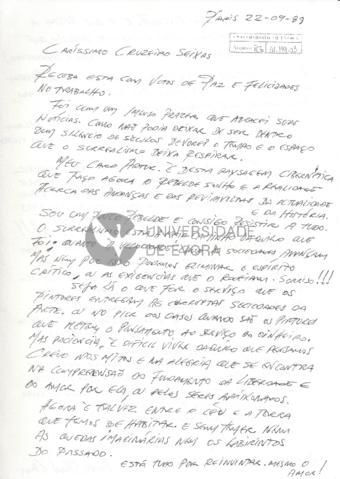 Paris 22-09-89
Caríssimo Cruzeiro Seixas
Receba esta com votos de Paz e Felicidades
no trabalho.
Foi com um imenso prazer que as suas
notícias. Como não podia deixar de ser dentro
dum silêncio de séculos devorei o tempo e o espaço
que o surrealismo deixa respirar.
Meu caro Pintor. É desta paisagem cibernética
que faço agora o sonho e a realidade
acerca das mudanças e das da actualidade
e da História.
Sou um e consigo resistir a tudo.
O surrealismo está daquilo que
foi. as sociedades avançam
mas nem por isso podemos eliminar o espírito
crítico, ou as exigências que o reclamam. Somos!!!
Seja lá o que for o serviço que os
pintores entregam às sociedades da
arte. Ou no pior dos casos quando são os pintores
que metem o pensamento ao serviço do dinheiro.
Mas paciência, é difícil viver daquilo que pensamos
Creio nos mitos e na alegria que se encontra
na compreensão do fundamento da liberdade e
do amor por ela, ou pelos seres apaixonados.
Agora é talvez entre o céu e a terra
que temos de habitar e sem temer nem
as quedas imaginárias nem os labirintos
do passado.
Está tudo por reinventar. Mesmo o
amor!
UNIVERSIDADE
DE ÉVORA